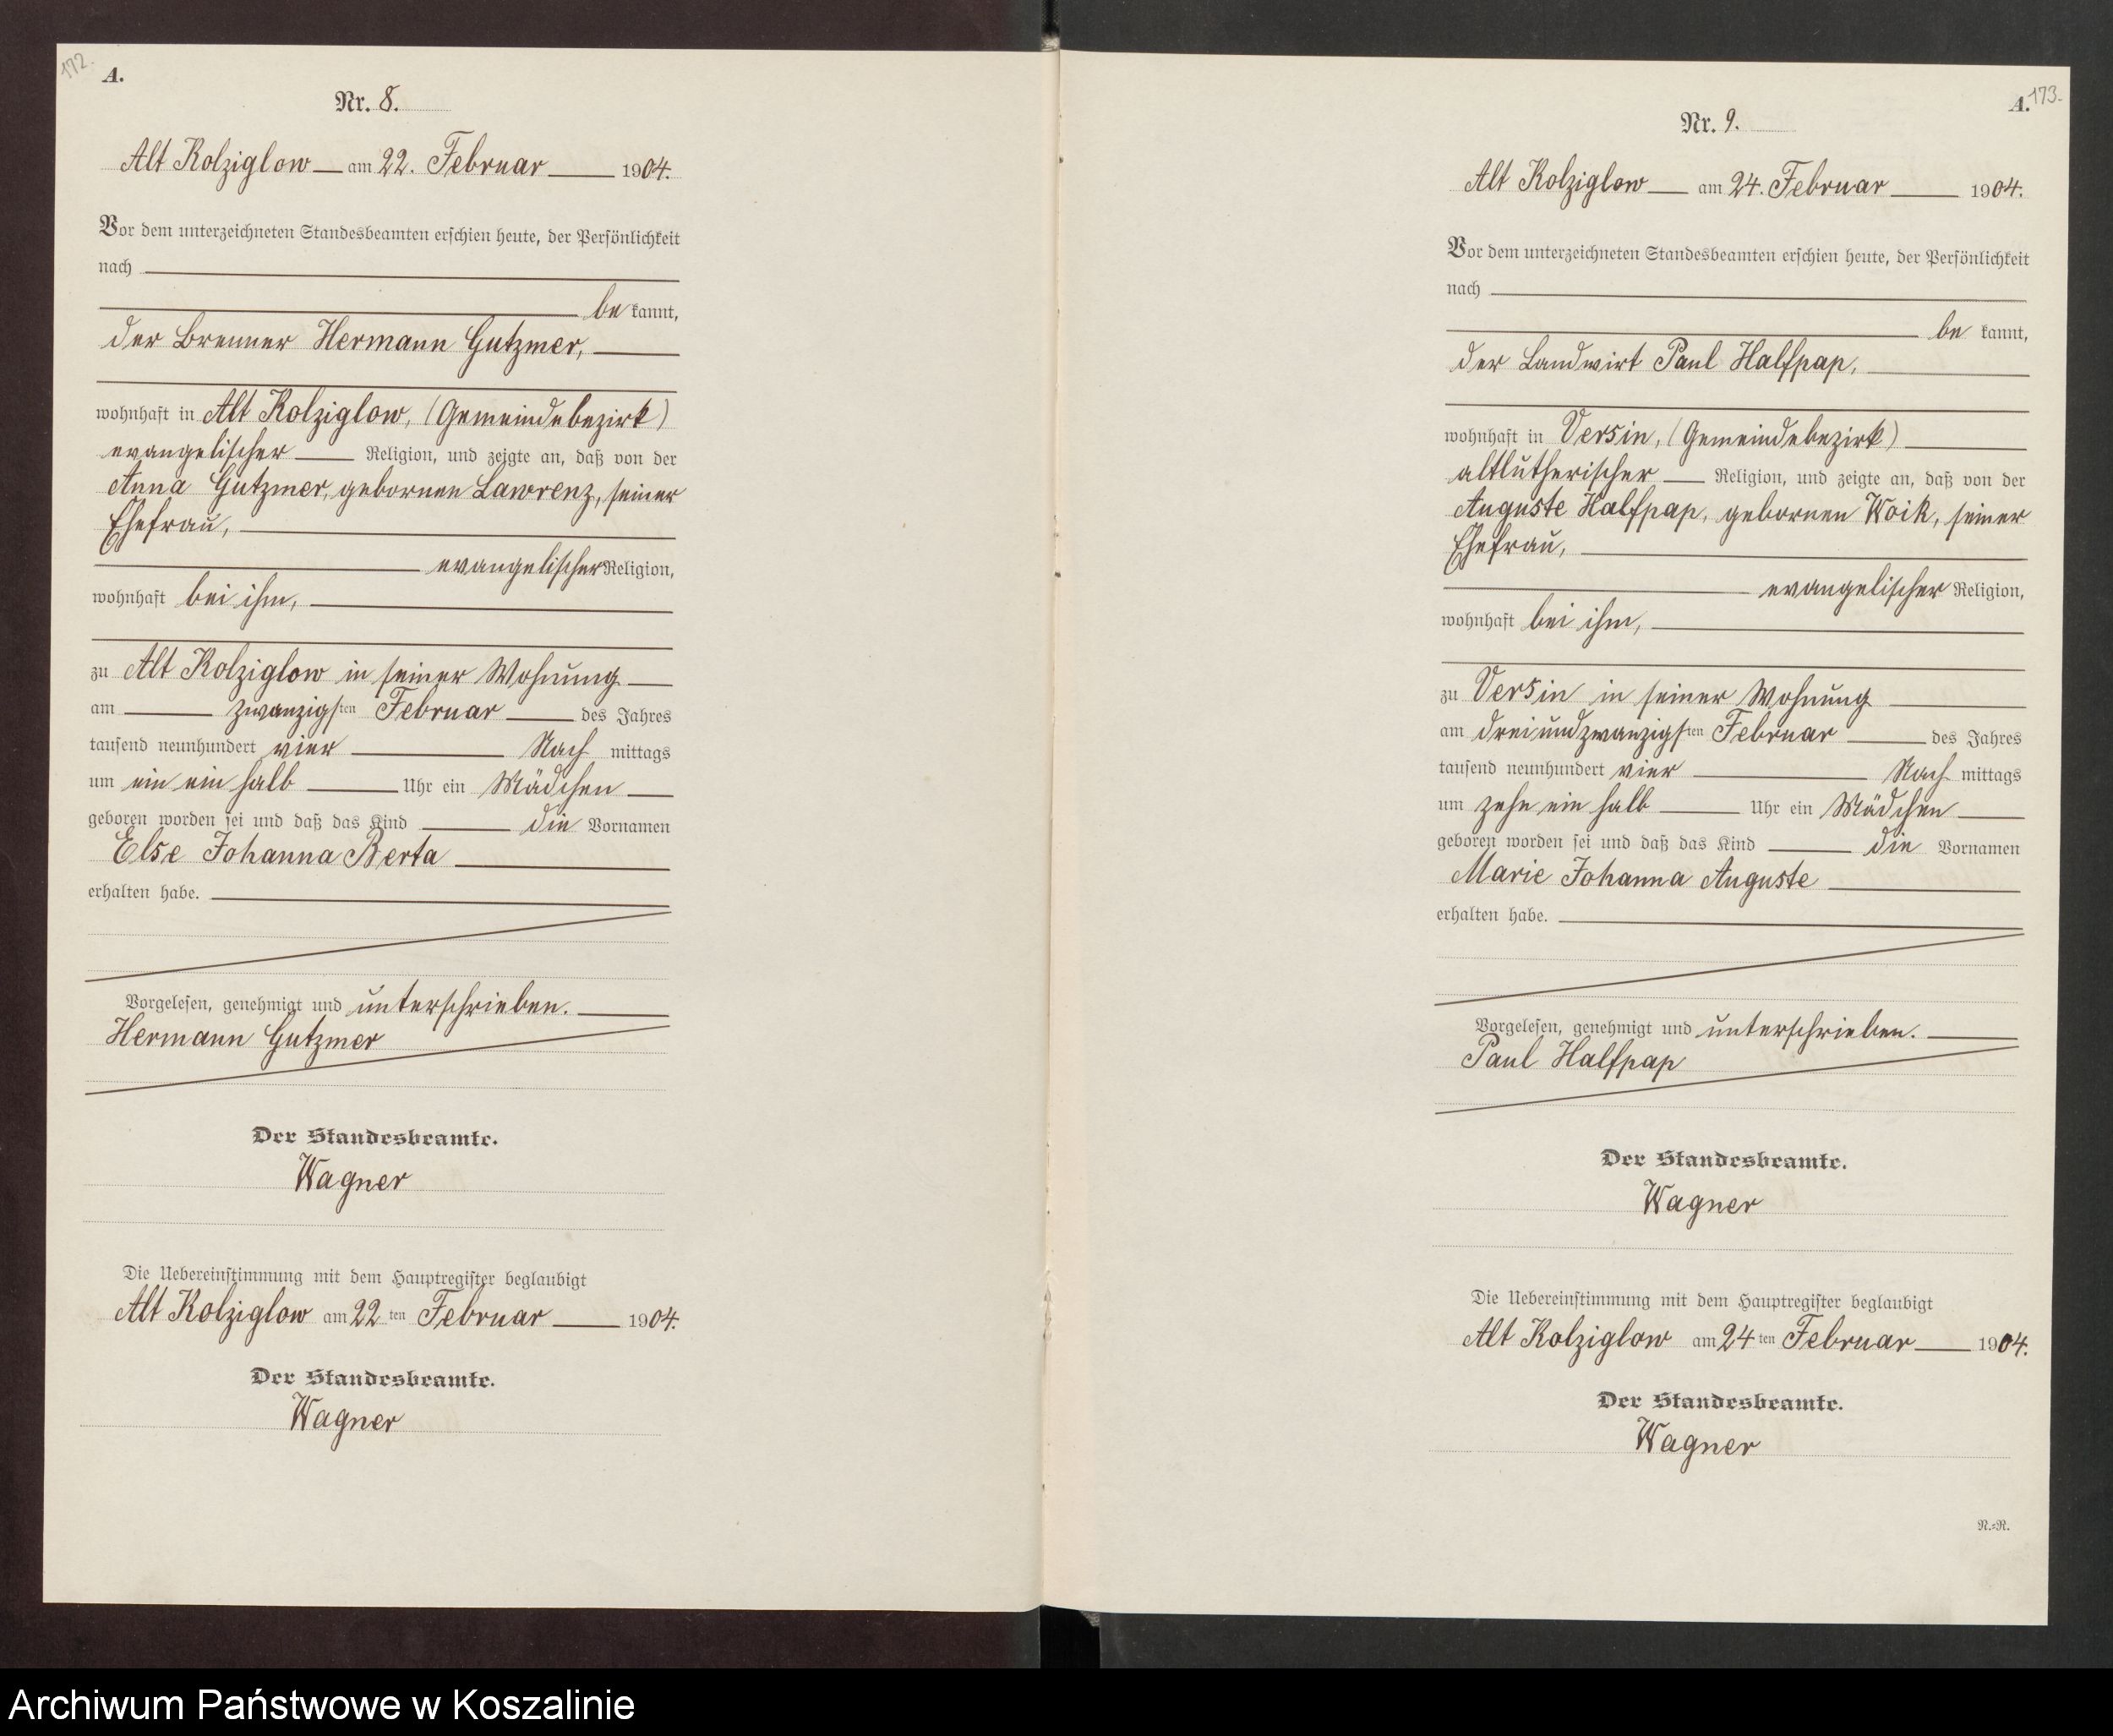 172.
A.
Nr. 8.
Alt Kolziglow am 22. Februar 1904.
Vor dem unterzeichneten Standesbeamten erschien heute, der Persönlichkeit
nach
be kannt,
der Brenner Hermann Gutzmer,
wohnhaft in Alt Kolziglow, (Gemeindebezirk)
evangelischer Religion, und zeigte an, daß von der
Anna Gutzmer, gebornen Lawrenz, seiner
Ehefrau,
evangelischer Religion,
wohnhaft bei ihm,
zu Alt Kolziglow in seiner Wohnung
am zwanzigsten Februar des Jahres
tausend neunhundert vier Nach mittags
um ein ein halb Uhr ein Mädchen
geboren worden sei und daß das Kind die Vornamen
Else Johanna Berta
erhalten habe.
Vorgelesen, genehmigt und unterschrieben.
Hermann Gutzmer
Der Standesbeamte.
Wagner
Die Uebereinstimmung mit dem Hauptregister beglaubigt
Alt Kolziglow am 22 ten Februar 1904.
Der Standesbeamte.
Wagner
173.
A.
Nr. 9.
Alt Kolziglow am 24. Februar 1904.
Vor dem unterzeichneten Standesbeamten erschien heute, der Persönlichkeit
nach
be kannt,
der Landwirt Paul Halfpap,
wohnhaft in Versin, (Gemeindebezirk)
altlutherischer Religion, und zeigte an, daß von der
Auguste Halfpap, gebornen Woik, seiner
Ehefrau,
evangelischer Religion,
wohnhaft bei ihm,
zu Versin in seiner Wohnung
am dreiundzwanzigsten Februar des Jahres
tausend neunhundert vier Nach mittags
um zehn ein halb Uhr ein Mädchen
geboren worden sei und daß das Kind die Vornamen
Marie Johanna Auguste
erhalten habe.
Vorgelesen, genehmigt und unterschrieben.
Paul Halfpap
Der Standesbeamte.
Wagner
Die Uebereinstimmung mit dem Hauptregister beglaubigt
Alt Kolziglow am 24 ten Februar 1904.
Der Standesbeamte.
Wagner
N.=R.
Archiwum Państwowe w Koszalinie